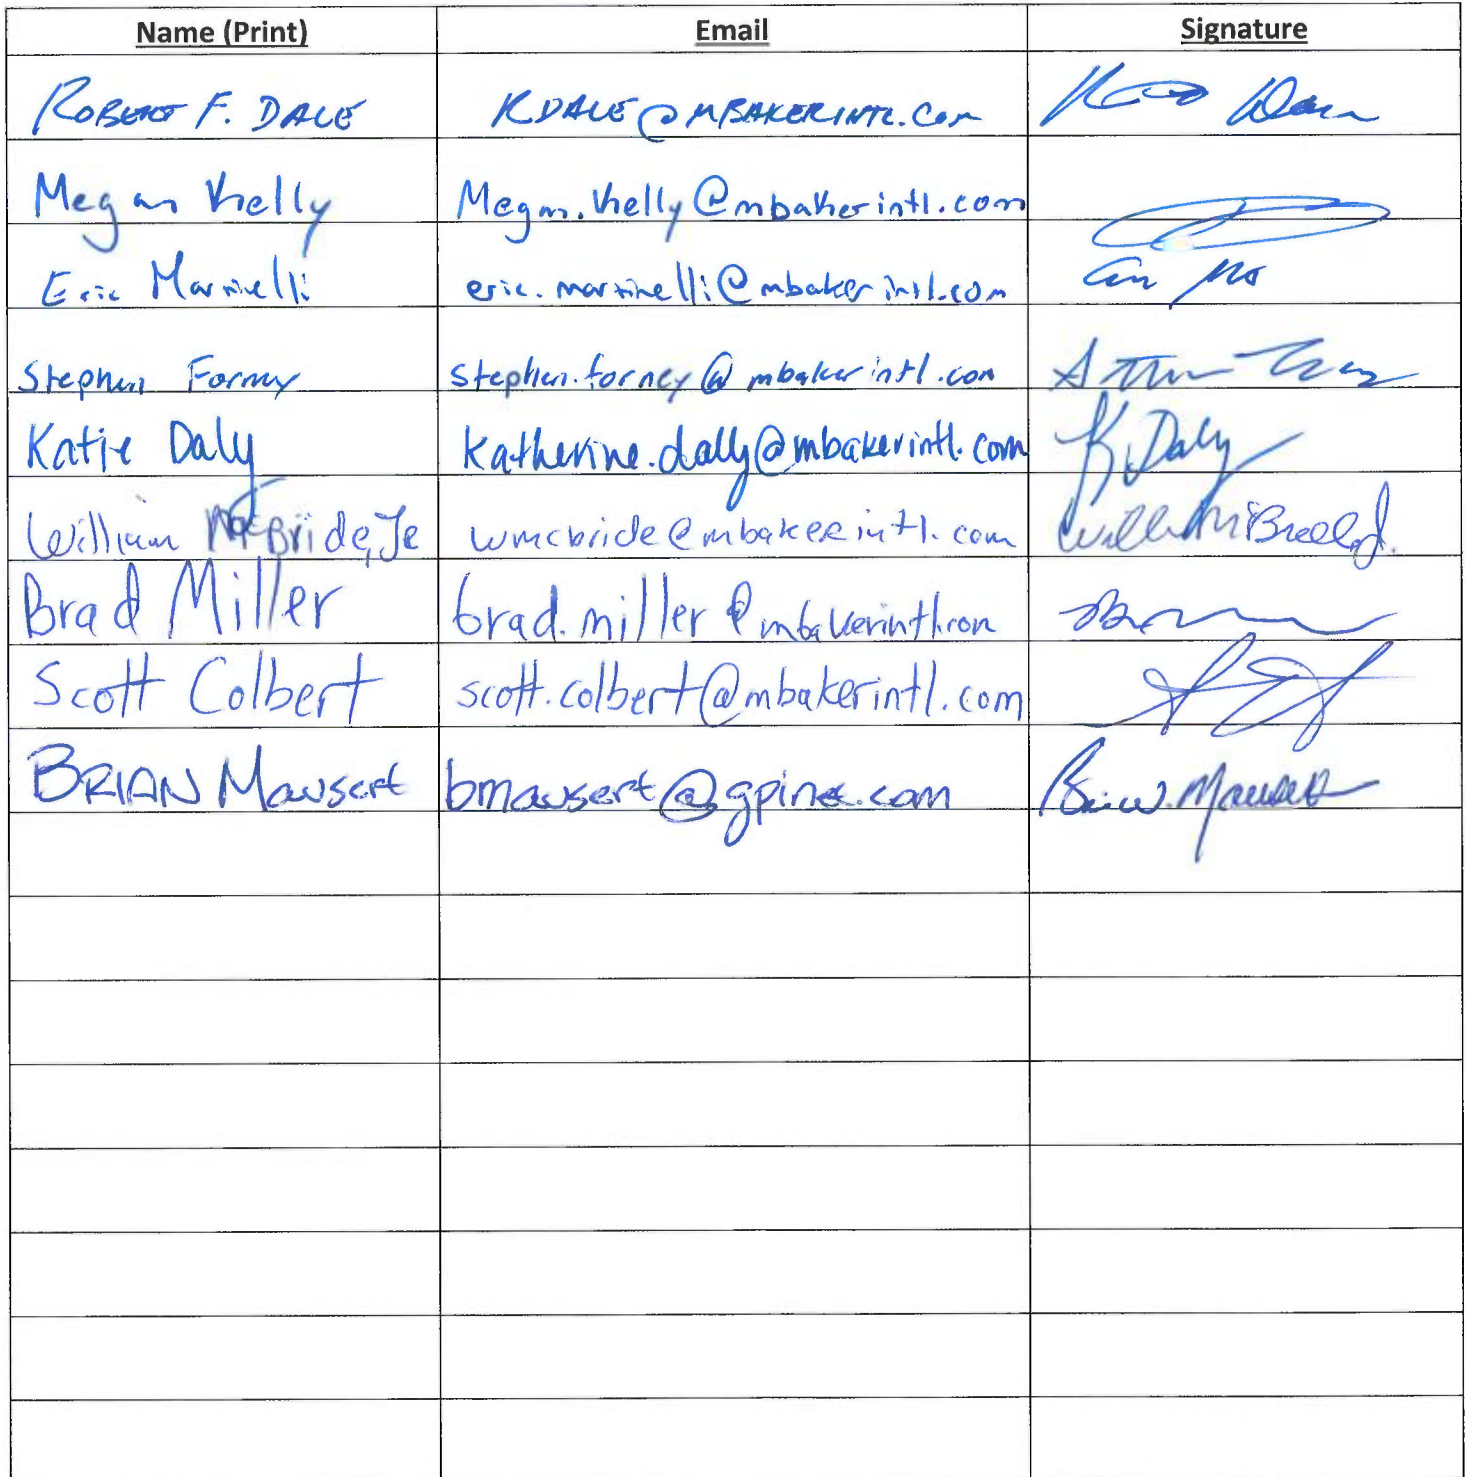 Name (Print) Email Signature
ROBERT F. DALE RDALE@MBAKERINTL.COM
Megan Kelly Megan.Kelly@mbakerintl.com
Eric Martinelli eric.martinelli@mbakerintl.com
Stephen Forney stephen.forney@mbakerintl.com
Katie Daly katherine.dally@mbakerintl.com K Daly
William McBride, Jr wmcbride@mbakerintl.com William McBride Jr.
Brad Miller brad.miller@mbakerintl.com
Scott Colbert scott.colbert@mbakerintl.com
BRIAN Mausert bmausert@gpinet.com Brian W. Mausert